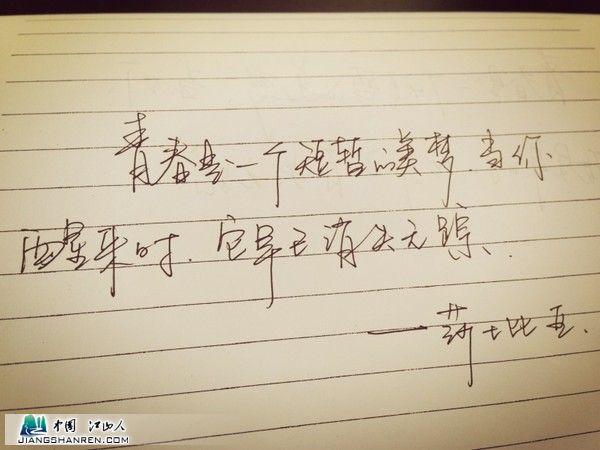 青春是一个短暂的美梦.当你
醒来时.它早已消失无踪.
——莎士比亚.
中国 江山人
JIANGSHANREN.COM